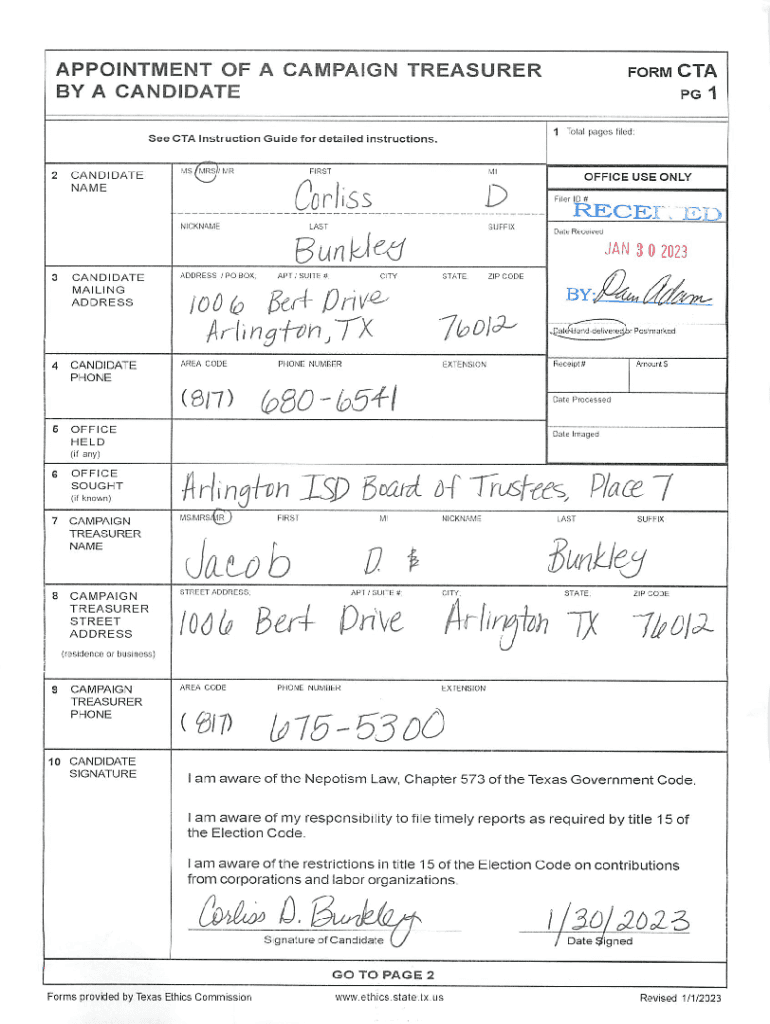 APPOINTMENT OF A CAMPAIGN TREASURER BY A CANDIDATE
FORM CTA
PG 1
See CTA Instruction Guide for detailed instructions.
1 Total pages filed:
2 CANDIDATE NAME
MS / MRS / MR FIRST MI
Corliss D
NICKNAME LAST SUFFIX
Bunkley
OFFICE USE ONLY
Filer ID #
RECEIVED
Date Received
JAN 30 2023
BY:
Date Hand-delivered or Postmarked
Receipt # Amount $
Date Processed
Date Imaged
3 CANDIDATE MAILING ADDRESS
ADDRESS / PO BOX; APT / SUITE #; CITY; STATE; ZIP CODE
1006 Bert Drive
Arlington, TX 76012
4 CANDIDATE PHONE
AREA CODE PHONE NUMBER EXTENSION
(817) 680-6541
5 OFFICE HELD (if any)
6 OFFICE SOUGHT (if known)
Arlington ISD Board of Trustees, Place 7
7 CAMPAIGN TREASURER NAME
MS/MRS/MR FIRST MI NICKNAME LAST SUFFIX
Jacob D. Bunkley
8 CAMPAIGN TREASURER STREET ADDRESS
(residence or business)
STREET ADDRESS; APT / SUITE #; CITY; STATE; ZIP CODE
1006 Bert Drive Arlington TX 76012
9 CAMPAIGN TREASURER PHONE
AREA CODE PHONE NUMBER EXTENSION
(817) 675-5300
10 CANDIDATE SIGNATURE
I am aware of the Nepotism Law, Chapter 573 of the Texas Government Code.
I am aware of my responsibility to file timely reports as required by title 15 of
the Election Code.
I am aware of the restrictions in title 15 of the Election Code on contributions
from corporations and labor organizations.
Corliss D. Bunkley 1/30/2023
Signature of Candidate Date Signed
GO TO PAGE 2
Forms provided by Texas Ethics Commission www.ethics.state.tx.us Revised 1/1/2023